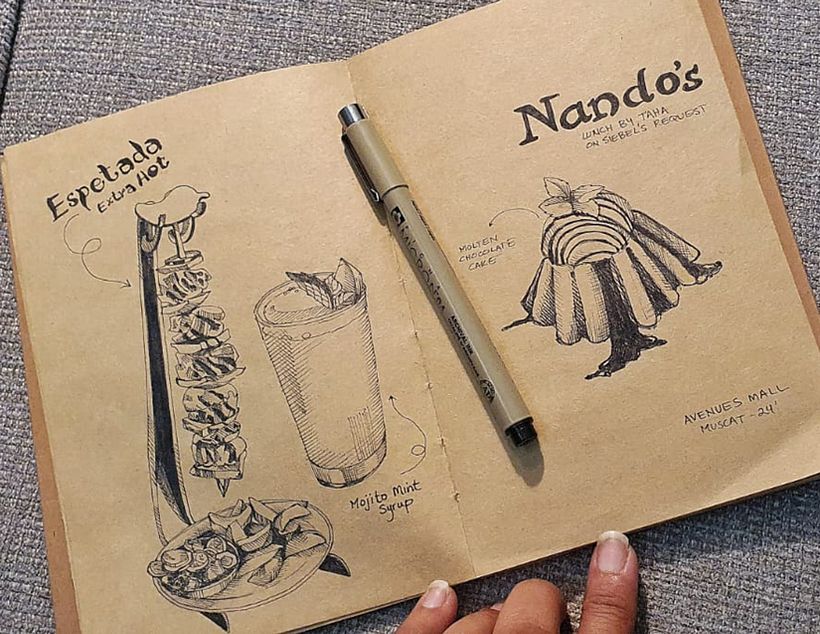 Espetada
Extra Hot
Mojito Mint
Syrup
Nando's
LUNCH BY TAHA
ON SIEBEL'S REQUEST
MOLTEN
CHOCOLATE
CAKE
AVENUES MALL
MUSCAT - 24'